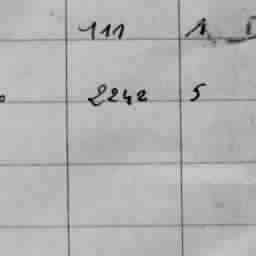 111 1
2242 5